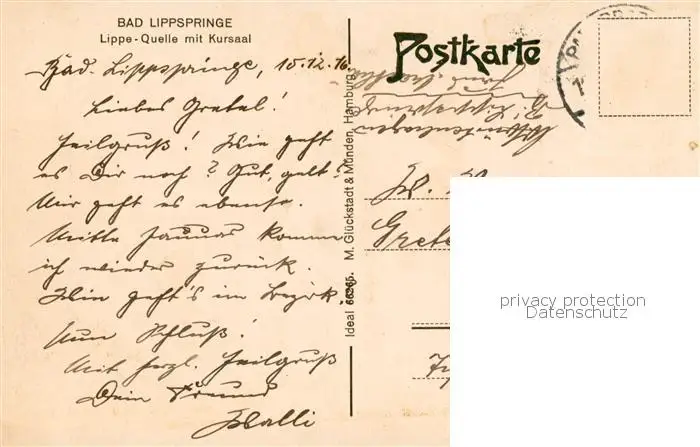 BAD LIPPSPRINGE
Lippe-Quelle mit Kursaal
Bad-Lippspringe, 15.12.16.
Liebes Gretel!
Heilgruß! Wie geht
es Dir noch? Gut, gelt?
Mir geht es ebenso.
Mitte Januar komme
ich wieder zurück.
Wie geht's im Bezirk.
Nun Schluß!
Mit herzl. Heilgruß
Dein Freund
Walli
Ideal 66265. M. Glückstadt & Münden, Hamburg
Postkarte
Lippspringe
Grete
privacy protection
Datenschutz